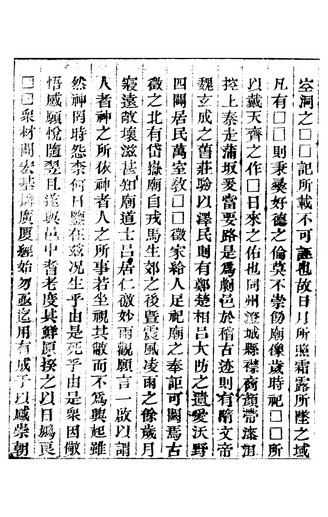 空洞之□□記所載不可誣也故日月所照霜露所墜之域
凡有□□則秉彝好德之倫莫不崇飭廟像歲時祀□□所
以戴天齊之作□日來之佑也同州澄城縣襟商顏帶漆沮
控上秦走蒲坂爰當要路是爲劇邑於稽古迹則有隋文帝
魏玄成之舊莊驗以澤民則有鄭楚相呂大防之遺愛沃野
四關居民萬室敎□□徵家給人足祀廟之奉詎可闕焉古
徵之北有岱嶽廟自戎馬生郊之後曁震風凌雨之餘歲月
寖遠敝壞滋甚知廟道士呂居仁徽妙雨觀願言一啟以謂
人者神之所依神者人之所事若坐視其敝而不爲興起雖
然神罔時怨李何日鑒在兹况生乎由是死乎由是衆因儆
悟感願悅隨翌日遂與邑中耆老度其鮮原揆之以日鳩㠯
□□衆材闢宏基構廣廈經始勿亟迄用有成于以咸崇朝